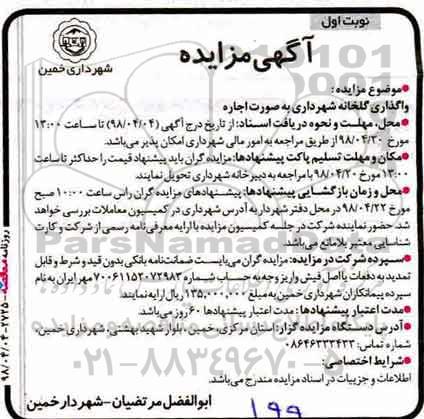 نوبت اول
آگهی مزایده
شهرداری خمین
موضوع مزایده:
واگذاری گلخانه شهرداری به صورت اجاره
محل، مهلت و نحوه دریافت اسناد: از تاریخ درج آگهی (۹۸/۰۴/۰۴) تا ساعت ۱۳:۰۰
مورخ ۹۸/۰۴/۲۰ از طریق مراجعه به امور مالی شهرداری امکان پذیر می‌باشد.
مکان و مهلت تسلیم پاکت پیشنهادها: مزایده گران باید پیشنهاد قیمت را حداکثر تا ساعت
۱۳:۰۰ مورخ ۹۸/۰۴/۲۰ با مراجعه به دبیرخانه شهرداری تحویل نمایند.
محل و زمان بازگشایی پیشنهادها: پیشنهادهای مزایده گران راس ساعت ۱۰:۰۰ صبح
مورخ ۹۸/۰۴/۲۲ در محل دفتر شهردار به آدرس شهرداری در کمیسیون معاملات بررسی خواهد
شد. حضور نماینده شرکت در جلسه کمیسیون مزایده با ارایه معرفی نامه رسمی از شرکت و کارت
شناسایی معتبر بلامانع می‌باشد.
سپرده شرکت در مزایده: مزایده گران می‌بایست ضمانت‌نامه بانکی بدون قید و شرط و قابل
تمدید به دفعات یا اصل فیش واریز وجه به حساب شماره ۷۰۰۶۱۱۵۳۰۷۲۹۸۳ مهر ایران به نام
سپرده پیمانکاران شهرداری خمین به مبلغ ۱۳۵,۰۰۰,۰۰۰ ریال ارایه نمایند.
مدت اعتبار پیشنهادها: مدت اعتبار پیشنهادها ۶۰ روز می‌باشد.
آدرس دستگاه مزایده گزار: استان مرکزی، خمین، بلوار شهید بهشتی، شهرداری خمین،
شماره تماس: ۰۸۶۴۶۳۳۳۴۳۳
شرایط اختصاصی:
اطلاعات و جزییات در اسناد مزایده مندرج می‌باشد.
ابوالفضل مرتضیان - شهردار خمین
۱۹۹
۰۲۱-۸۸۳۴۹۶۷۰-۵
ParsNamad